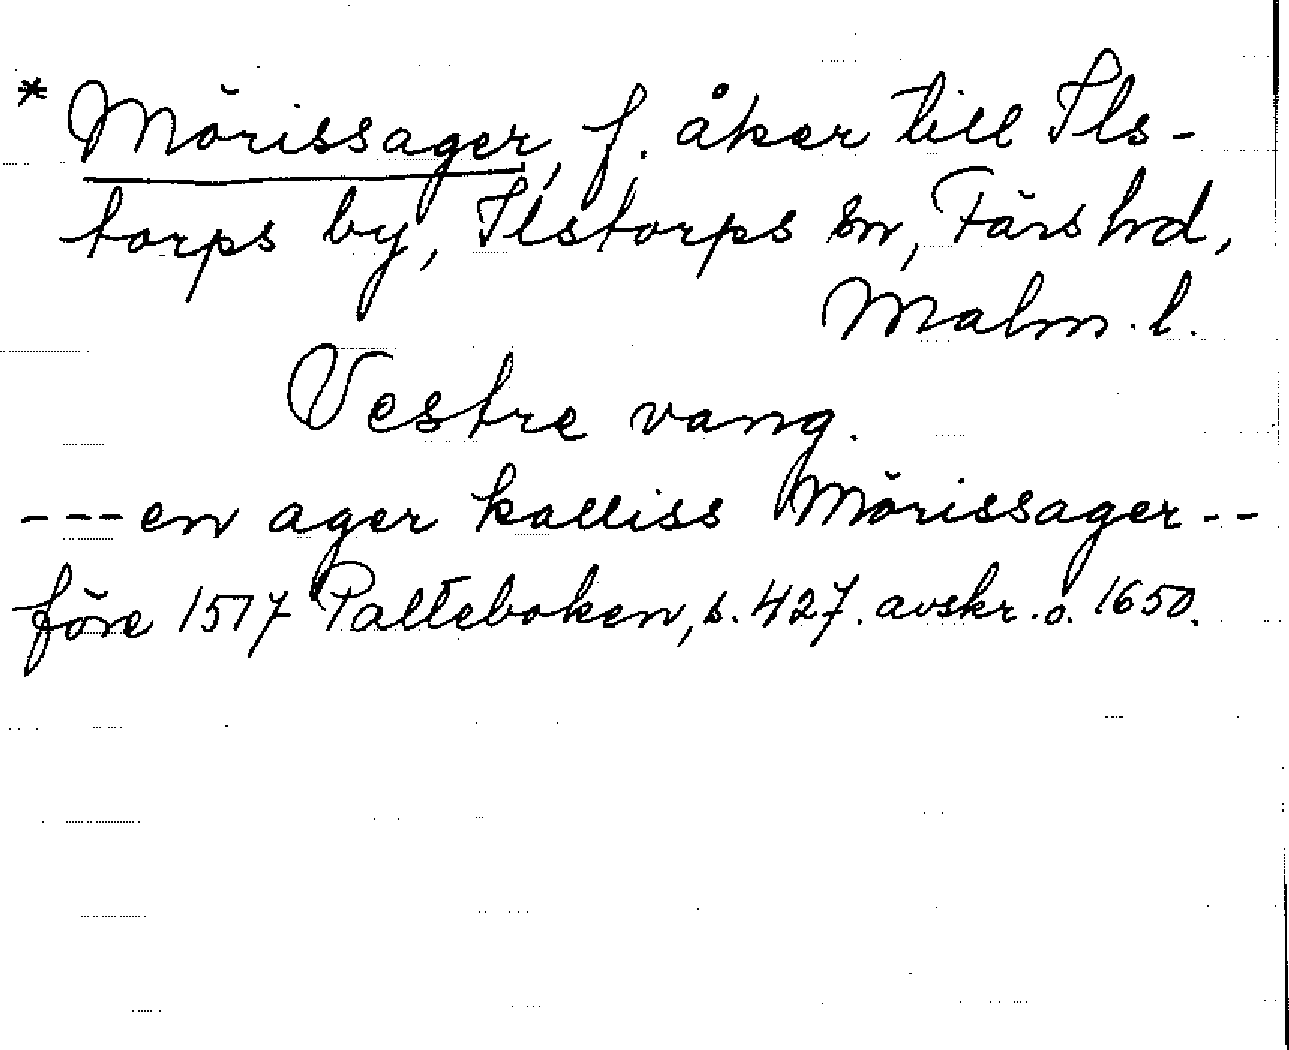 * Mörissager, f. åker till Ils-
torps by, Ilstorps sn, Färs hrd,
Malm. l.
Vestre vang.
--- en ager kalliss Mörissager --
före 1517 Palteboken, s. 427. avskr. o. 1650.